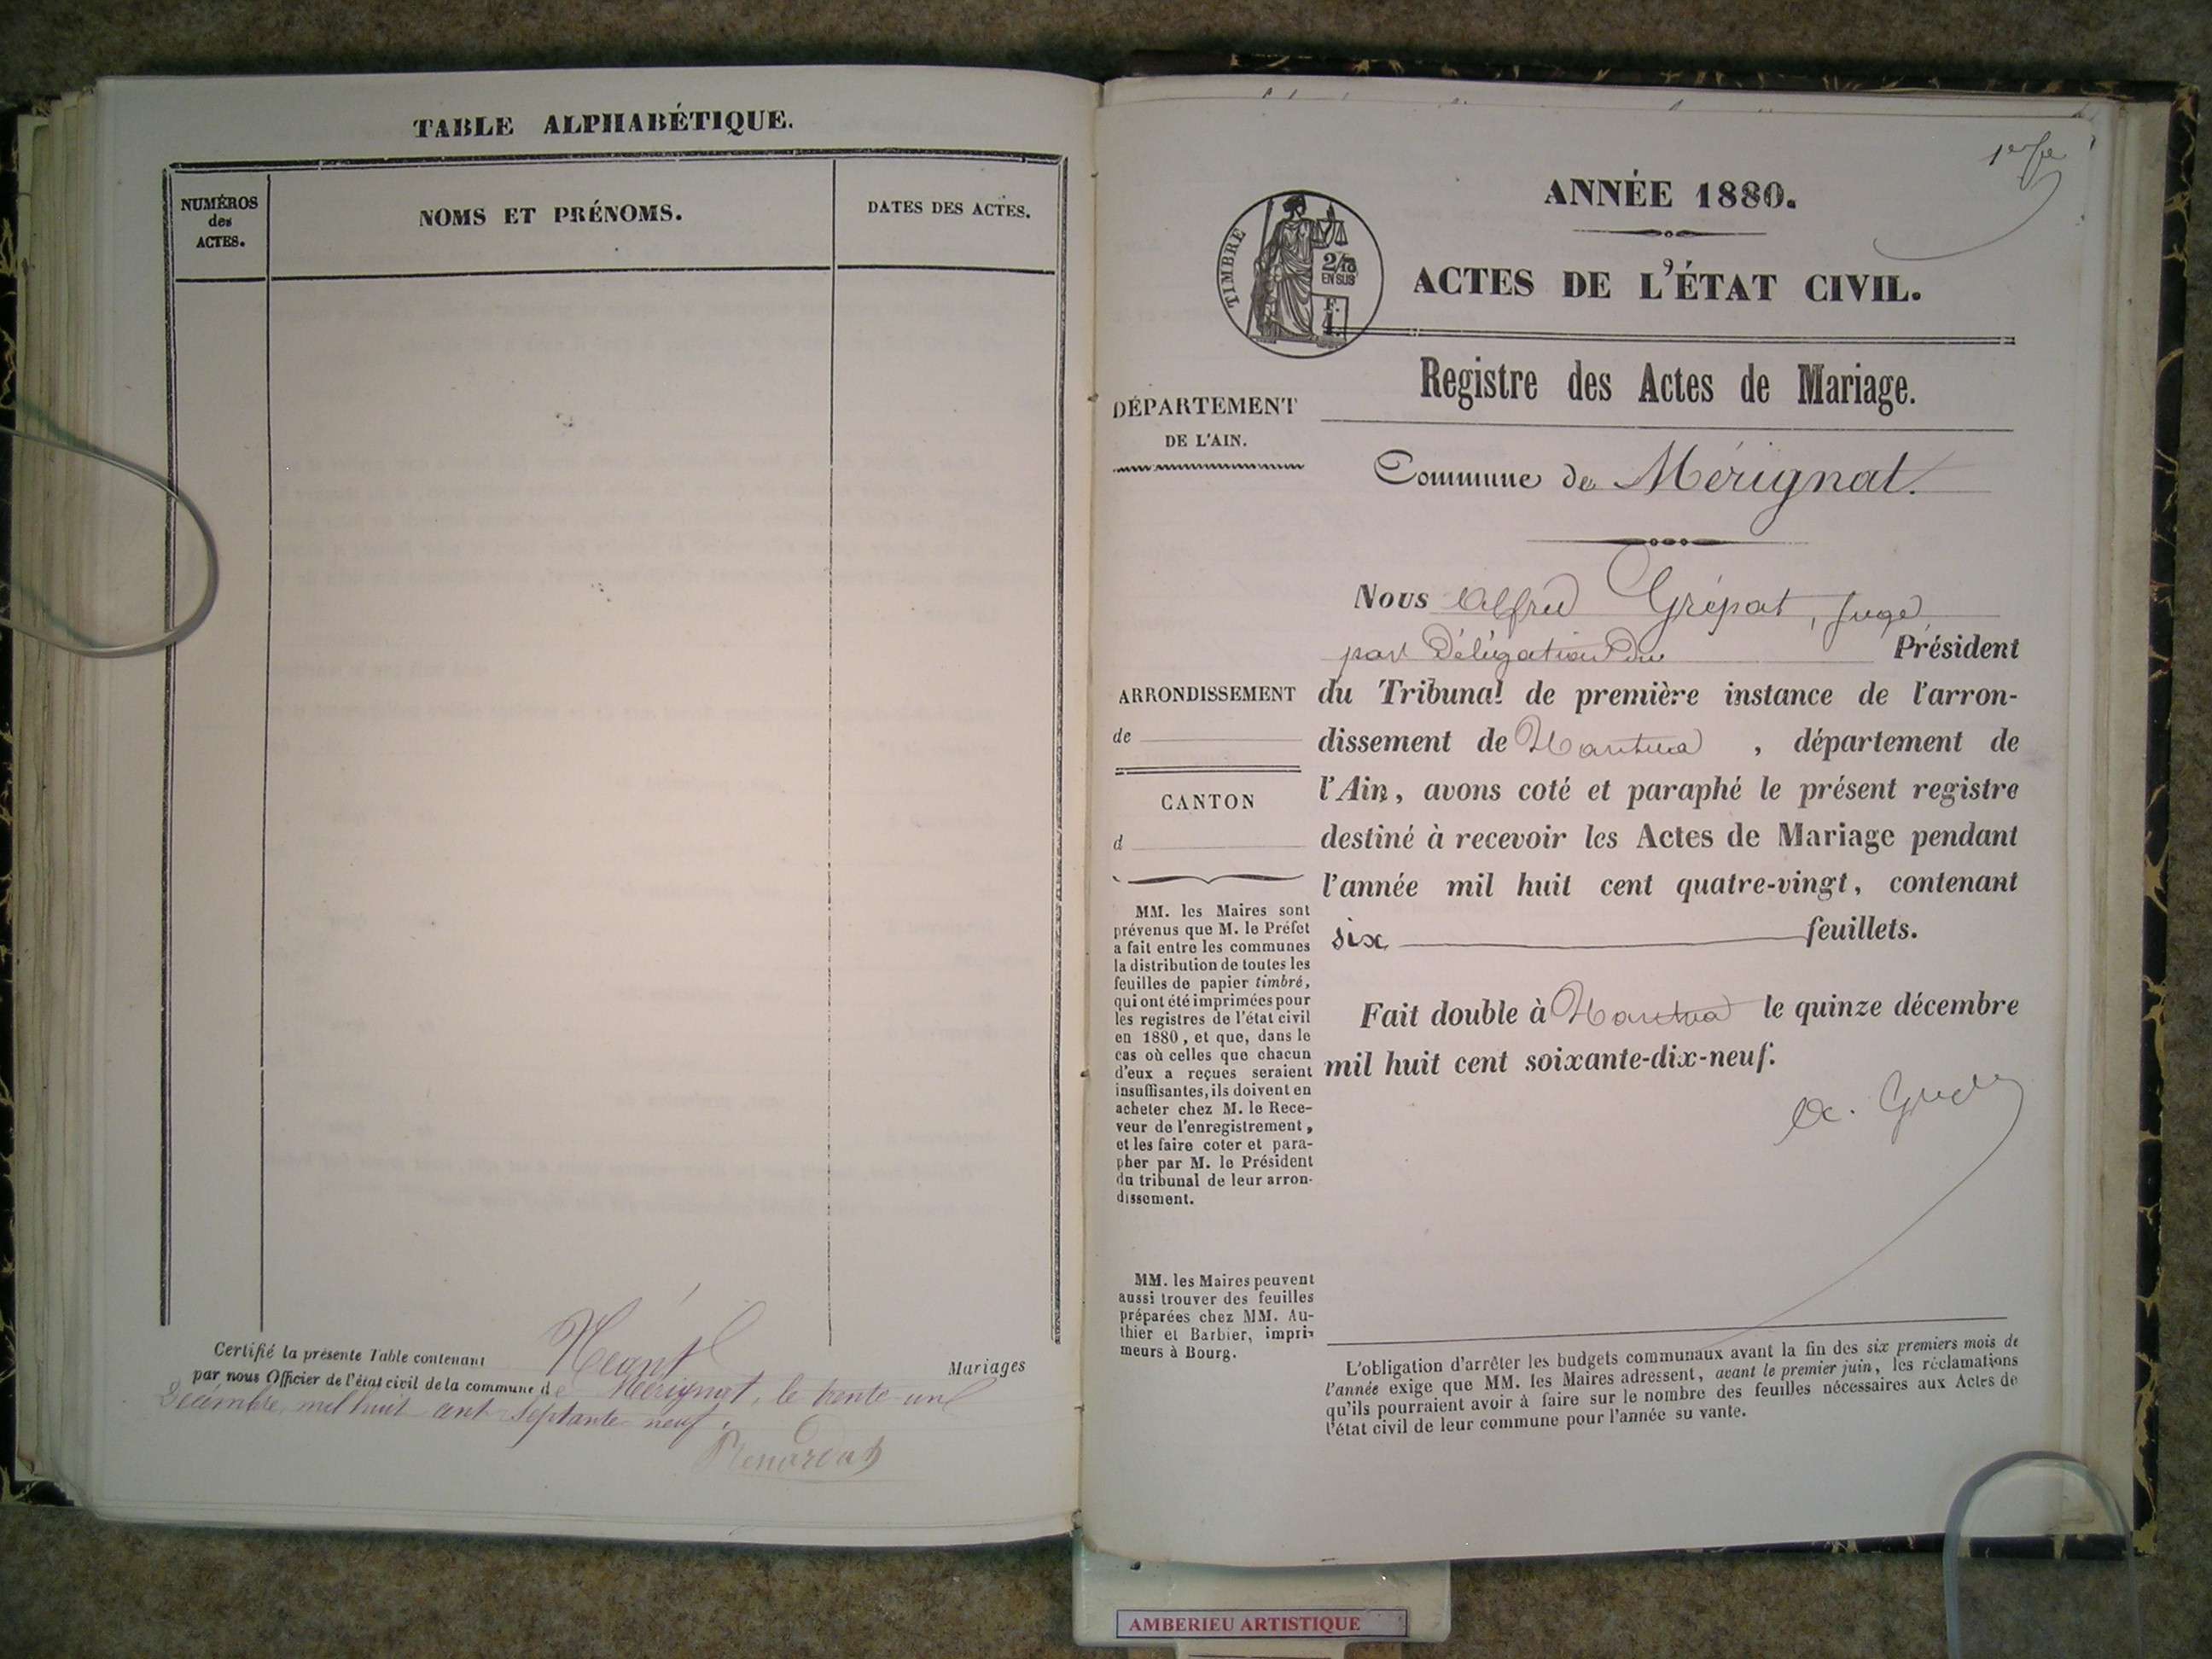 TABLE ALPHABÉTIQUE.
NUMÉROS
des
ACTES.
NOMS ET PRÉNOMS.
DATES DES ACTES.
Certifié la présente Table contenant Néant Mariages
par nous Officier de l'état civil de la commune de Mérignat, le trente un
Décembre mil huit cent septante neuf.
1er f
ANNÉE 1880.
TIMBRE
2/10
EN SUS
F.
1.
ACTES DE L'ÉTAT CIVIL.
Registre des Actes de Mariage.
DÉPARTEMENT
DE L'AIN.
Commune de Mérignat.
Nous Alfred Grépat, Juge
par Délégation du Président
du Tribunal de première instance de l'arron-
dissement de Nantua, département de
l'Ain, avons coté et paraphé le présent registre
destiné à recevoir les Actes de Mariage pendant
l'année mil huit cent quatre-vingt, contenant
six feuillets.
Fait double à Nantua le quinze décembre
mil huit cent soixante-dix-neuf.
ARRONDISSEMENT
de
CANTON
d
MM. les Maires sont
prévenus que M. le Préfet
a fait entre les communes
la distribution de toutes les
feuilles de papier timbré,
qui ont été imprimées pour
les registres de l'état civil
en 1880, et que, dans le
cas où celles que chacun
d'eux a reçues seraient
insuffisantes, ils doivent en
acheter chez M. le Rece-
veur de l'enregistrement,
et les faire coter et para-
pher par M. le Président
du tribunal de leur arron-
dissement.
MM. les Maires peuvent
aussi trouver des feuilles
préparées chez MM. Au-
thier et Barbier, impri-
meurs à Bourg.
L'obligation d'arrêter les budgets communaux avant la fin des six premiers mois de
l'année exige que MM. les Maires adressent, avant le premier juin, les réclamations
qu'ils pourraient avoir à faire sur le nombre des feuilles nécessaires aux Actes de
l'état civil de leur commune pour l'année su vante.
AMBERIEU ARTISTIQUE